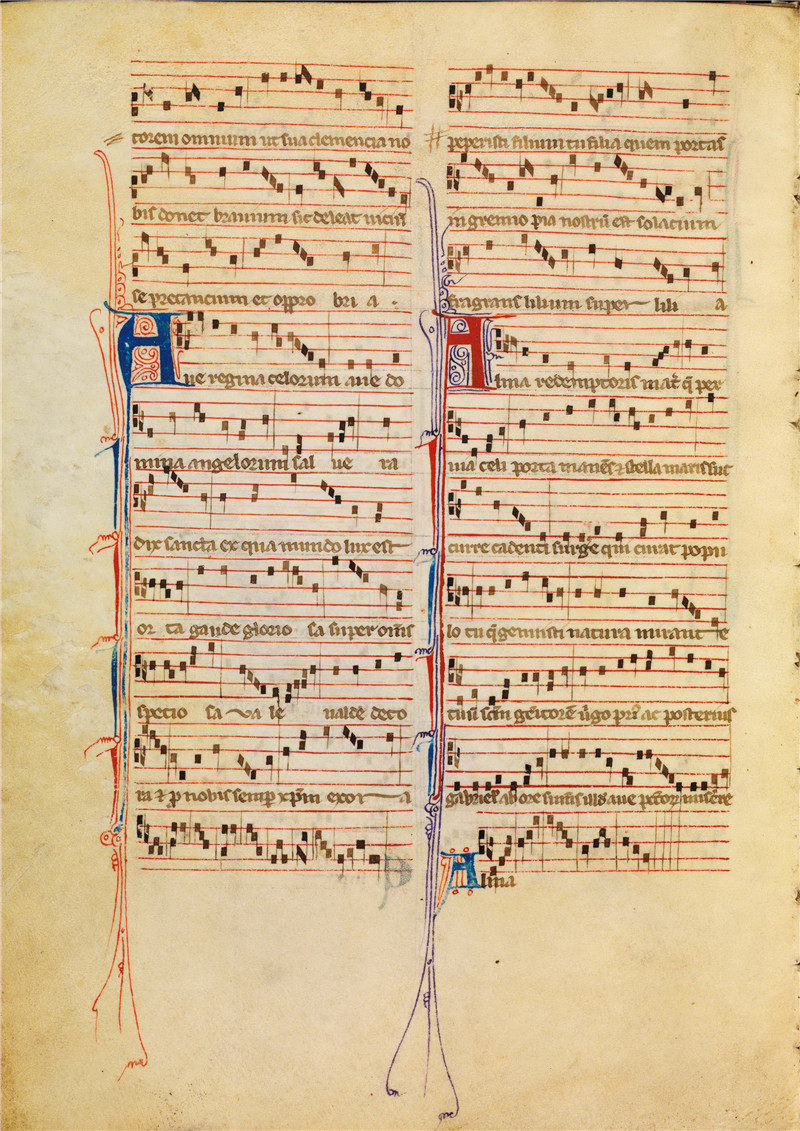 torem omnium ut sua clemencia no
bis donet bravium sic deleat vicium
se precancium et oppro bri a .
Aue regina celorum aue do
mina angelorum sal ue ra
dix sancta ex qua mundo lux est
or ta gaude glorio sa super om̄s
specio sa va le ualde deco
ra et ꝑ nobis semꝑ xp̄m exor a
peperisti filium tu filia quem portas
in gremio pia nostrū est solacium
fragrans lilium super lili a
Alma redemptoris mat̄ q̄ per
uia celi porta manēs et stella maris suc
curre cadenti surge̅ qui curat popu
lo tu q̄ genuisti natura mirante
tuū sc̄m genitorē ūgo pri9 ac posterius
gabrielis ab ore sumēs illđ aue peccatorum miserere
Alma